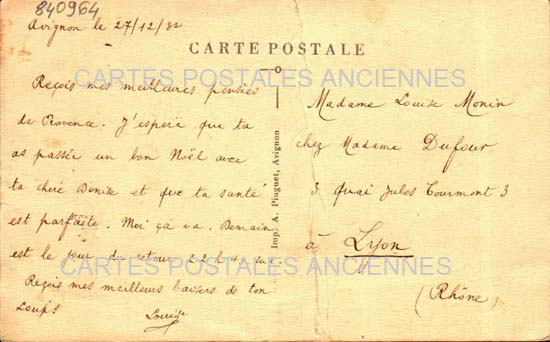 840964
Avignon le 27/12/32
CARTE POSTALE
CARTES POSTALES ANCIENNES
Reçois mes meilleures pensées
de Provence. J'espère que tu
as passée un bon Noël avec
ta chère Denise et que ta santé
est parfaite. Moi ça va. Demain
est le jour du retour 22h
Reçois mes meilleurs baisers de ton
Loup!
Louise
Imp. A. Pinguet, Avignon
Madame Louise Monin
chez Madame Dufour
3 quai Jules Courmont 3
à Lyon
(Rhône)
CARTES POSTALES ANCIENNES